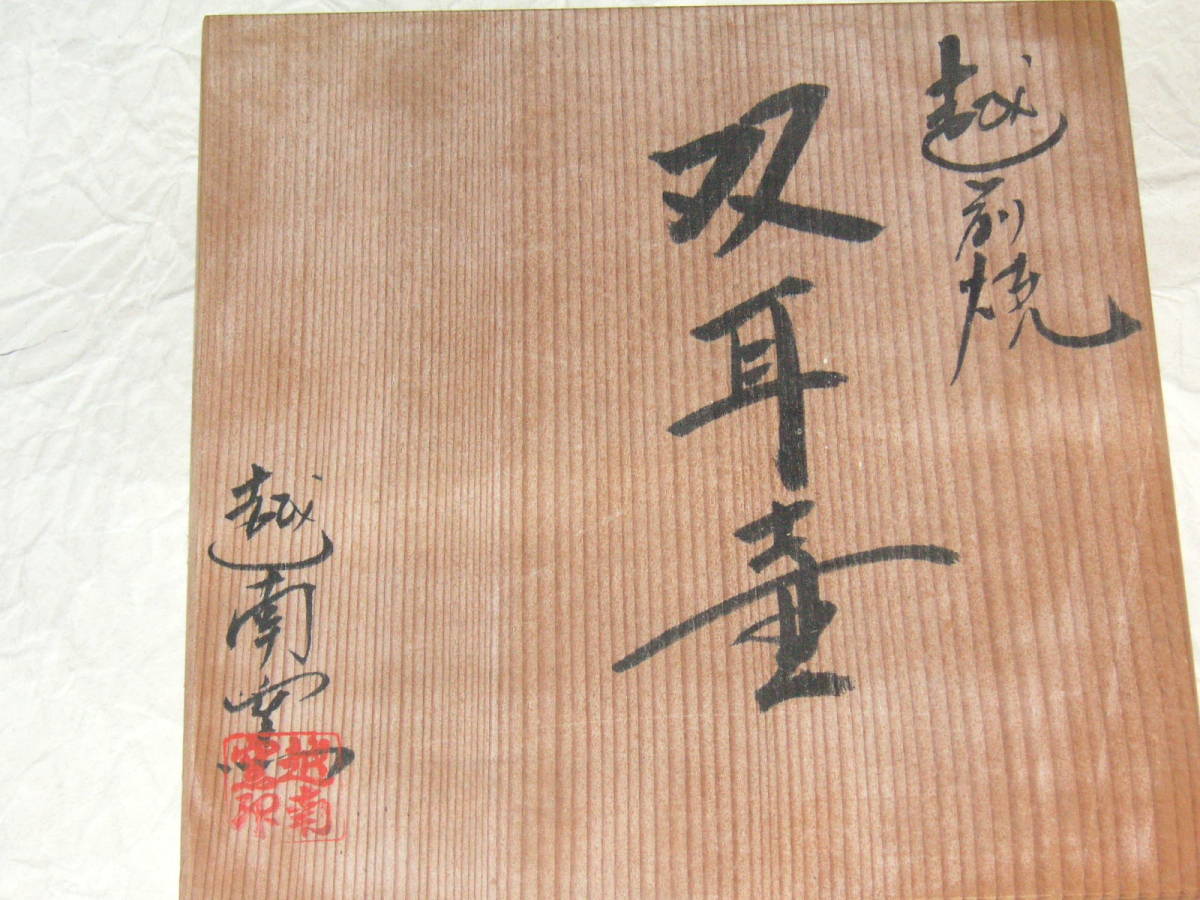 越前焼
双耳壷
越南窯
越南
窯印